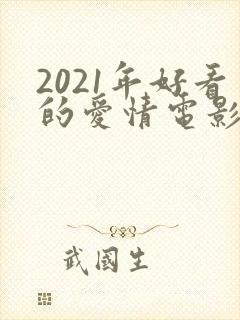 2021年好看
的爱情電影
武國生